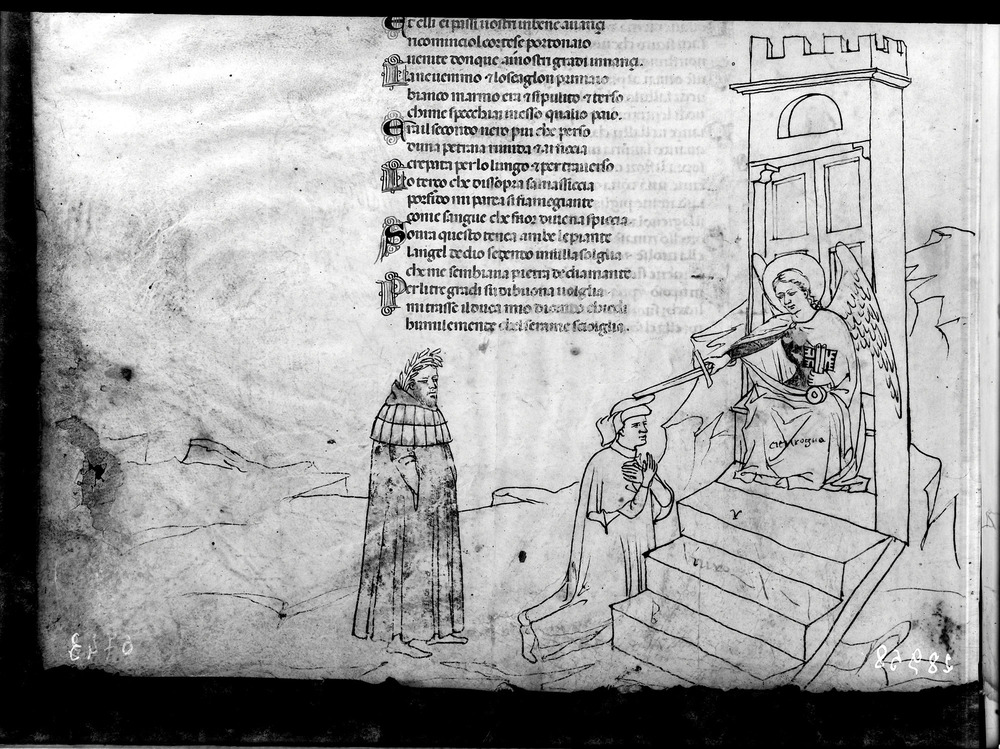 Et elli ei passi uostri inbene auançi
ricominciol cortese portonaio
uenite donque ainostri gradi innançi.
La neuenimo ⁊ loscaglon primaio
bianco marmo era ⁊ sipulito ⁊ terso
chime specchiai inesso qualio paio.
Eral secondo piu che perso
duna petrina ruuida ⁊ arsiccia
crepata per lo lungo ⁊ per trauerso
Lo terço che dissopra samassiccia
porfido mi parea si fiamegiante
come sangue che fuor diuena spiccia
Soura questo tenea ambe le piante
langel de dio sedendo insulla soglia
che me sembiaua pietra de diamante
Per li tre gradi su di buona uoglia
mi trasse il duca mio dicendo chiedi
humilemente chel serrame scioglia.